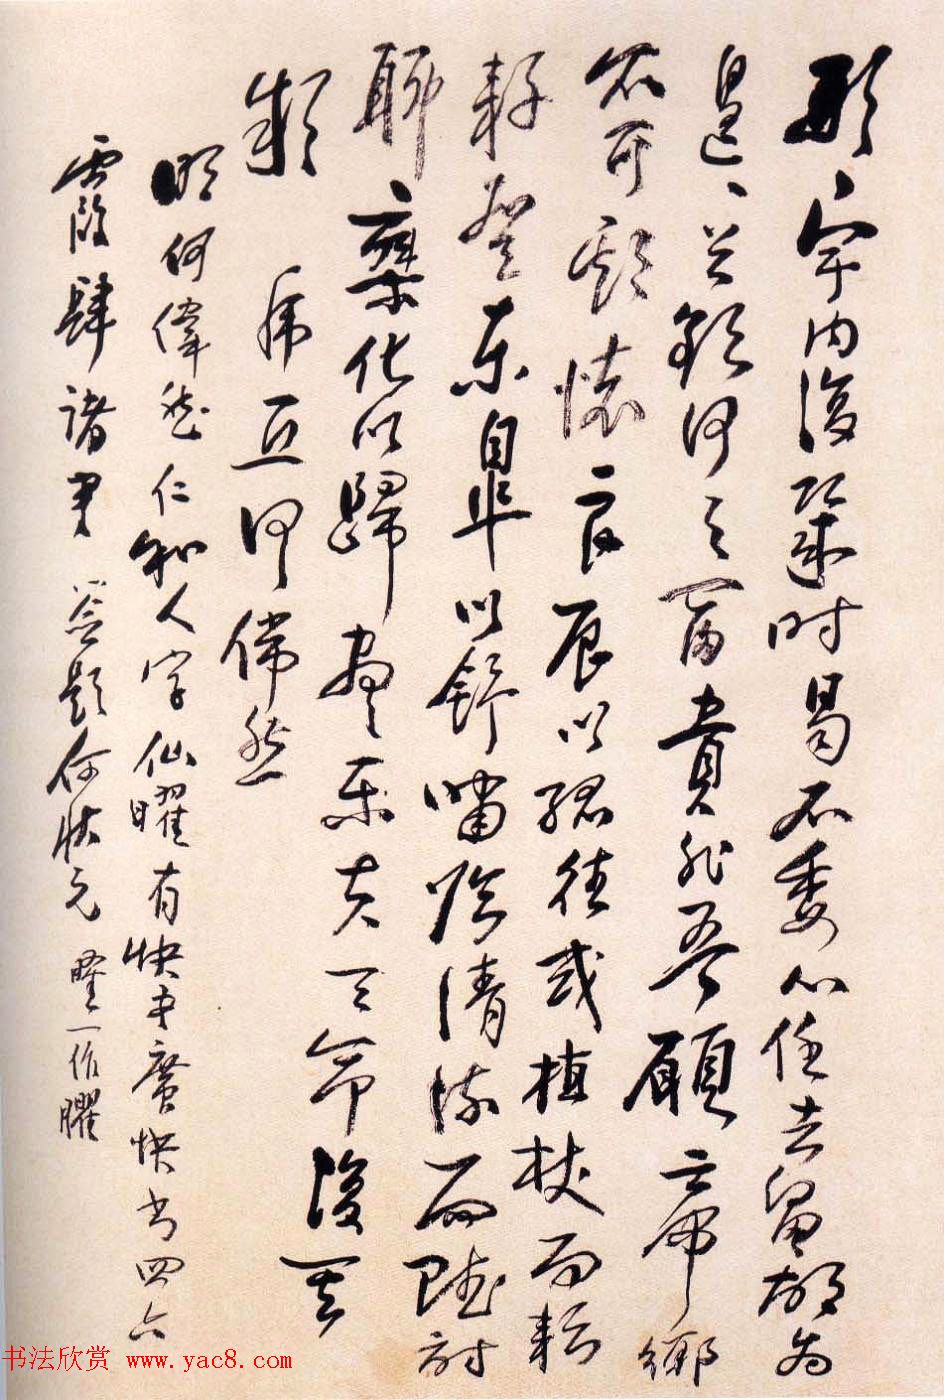 形宇内復幾時曷不委心任去留胡為
遑〻兮欲何之富貴非吾願帝鄉
不可期懷良辰以孤往或植杖而耘
耔登東皐以舒嘯臨清流而賦詩
聊乘化以歸盡樂夫天命復奚
疑 何偉然
明何偉然仁和人字仙曜有快書廣快書四六
霞肆諸書 簽題何狀元 一作臞
书法欣赏 www.yac8.com